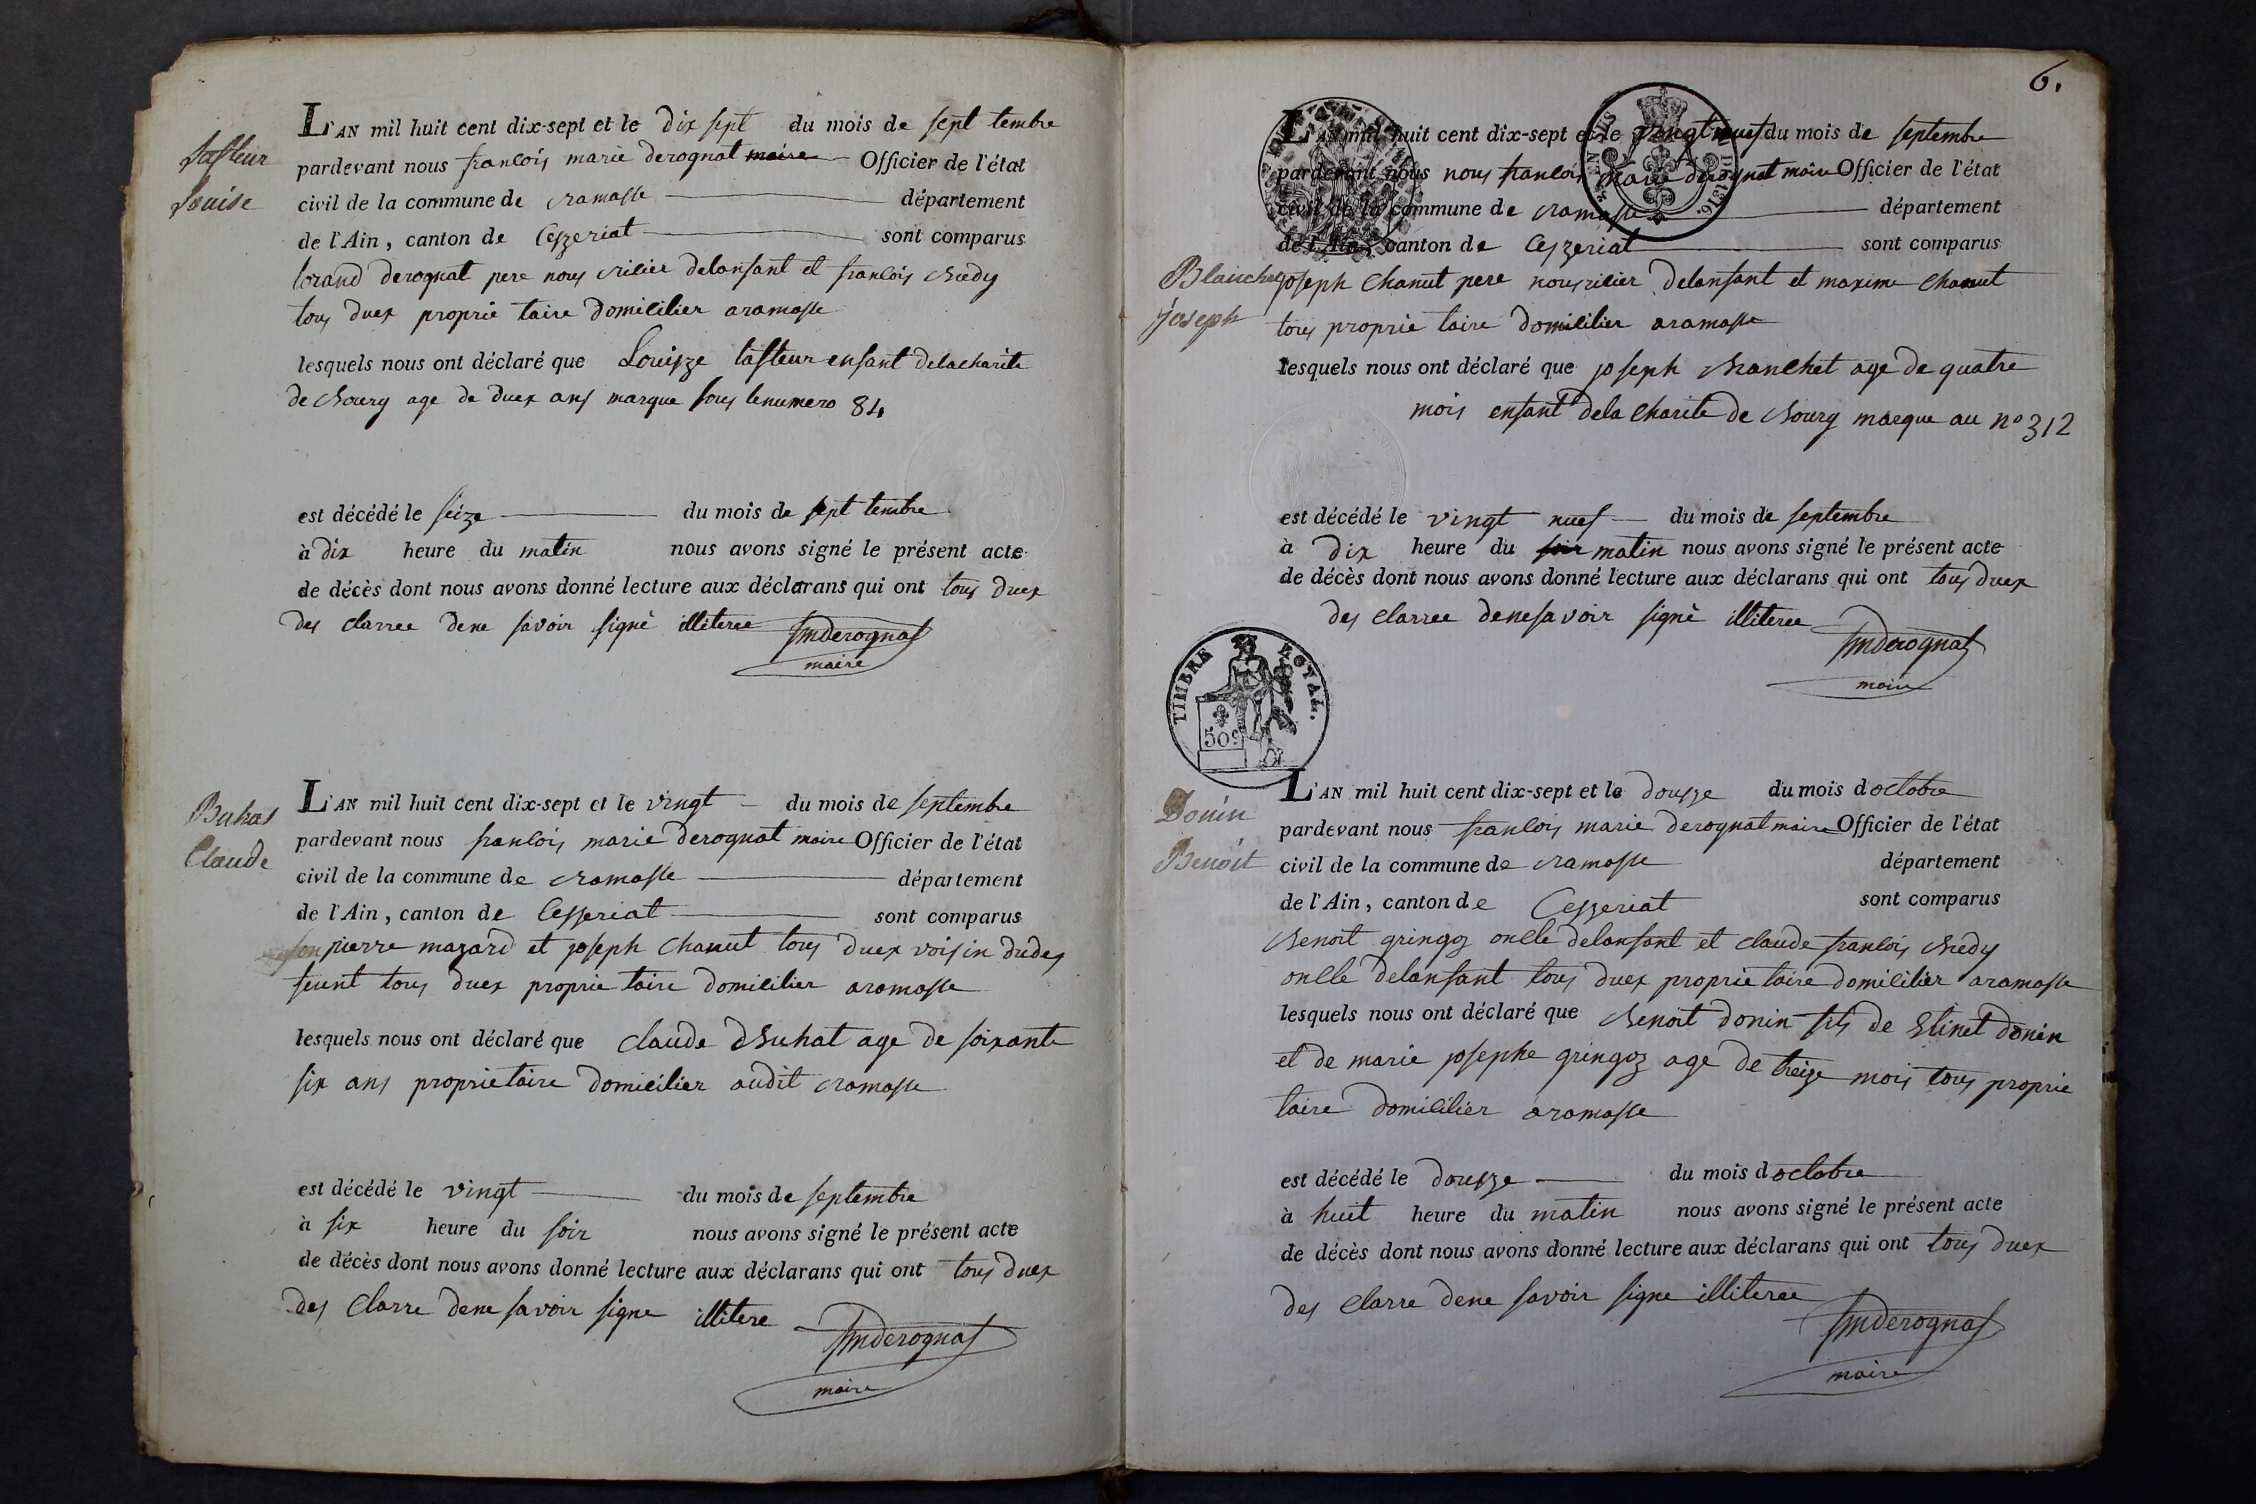 Tasteur
Louise
L'AN mil huit cent dix-sept et le dix sept du mois de sept tembre
pardevant nous francois marie derognat maire Officier de l'état
civil de la commune de ramasse département
de l'Ain, canton de Ceszeriat sont comparus
lorand derognat pere nouricier delanfant et francois Bredy
tous duex proprie taire domicilier aramasse
lesquels nous ont déclaré que Louisze tasteur enfant delacharite
de Bourg age de duex ans marque sous lenumero 84
est décédé le seize du mois de sept tembre
à dix heure du matin nous avons signé le présent acte
de décès dont nous avons donné lecture aux déclarans qui ont tous duex
des clarree dene savoir signè illiteree
fmderognat
maire
Buhas
Claude
L'AN mil huit cent dix-sept et le vingt du mois de septembre
pardevant nous francois marie derognat maire Officier de l'état
civil de la commune de ramasse département
de l'Ain, canton de Cesseriat sont comparus
pierre mazard et joseph Chanut tous duex voisin dudes
feunt tous duex proprie taire domicilier aramasse
lesquels nous ont déclaré que claude Buhat age de soixante
six ans proprietaire domicilier audit ramasse
est décédé le vingt du mois de septembre
à six heure du soir nous avons signé le présent acte
de décès dont nous avons donné lecture aux déclarans qui ont tous duex
des clarre dene savoir signe illitere
fmderognat
maire
6.
L'AN mil huit cent dix-sept et le vingt nuef du mois de septembre
pardevant nous nous francois marie derognat maire Officier de l'état
civil de la commune de ramasse département
de l'Ain, canton de Ceszeriat sont comparus
Blanchet
joseph
joseph Chanut pere nouricier delanfant et maxime Chanut
tous proprie taire domicilier aramasse
lesquels nous ont déclaré que joseph Blanchet age de quatre
mois enfant dela Charite de Bourg marque au no 312
est décédé le vingt nuef du mois de septembre
à dix heure du soir matin nous avons signé le présent acte
de décès dont nous avons donné lecture aux déclarans qui ont tous duex
des clarree denesavoir signè illiteree
fmderognat
maire
TIMBRE ROYAL.
50c
Donin
Benoit
L'AN mil huit cent dix-sept et le dousze du mois doctobre
pardevant nous francois marie derognat maire Officier de l'état
civil de la commune de ramasse département
de l'Ain, canton de Ceszeriat sont comparus
Benoit gringoz oncle delanfant et claude francois Bredy
oncle delanfant tous duex proprietaire domicilier aramasse
lesquels nous ont déclaré que Benoit donin fils de Etinet donin
et de marie josephe gringoz age de treize mois tous proprie
taire domicilier aramasse
est décédé le dousze du mois doctobre
à huit heure du matin nous avons signé le présent acte
de décès dont nous avons donné lecture aux déclarans qui ont tous duex
des clarre dene savoir signe illiteree
fmderognat
maire